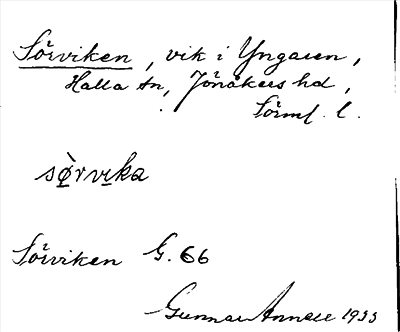 Sörviken, vik i Yngaren,
Halla sn, Jönåkers hd,
Sörml. l.
sørvika
Sörviken G. 66
Gunnar Annell 1933